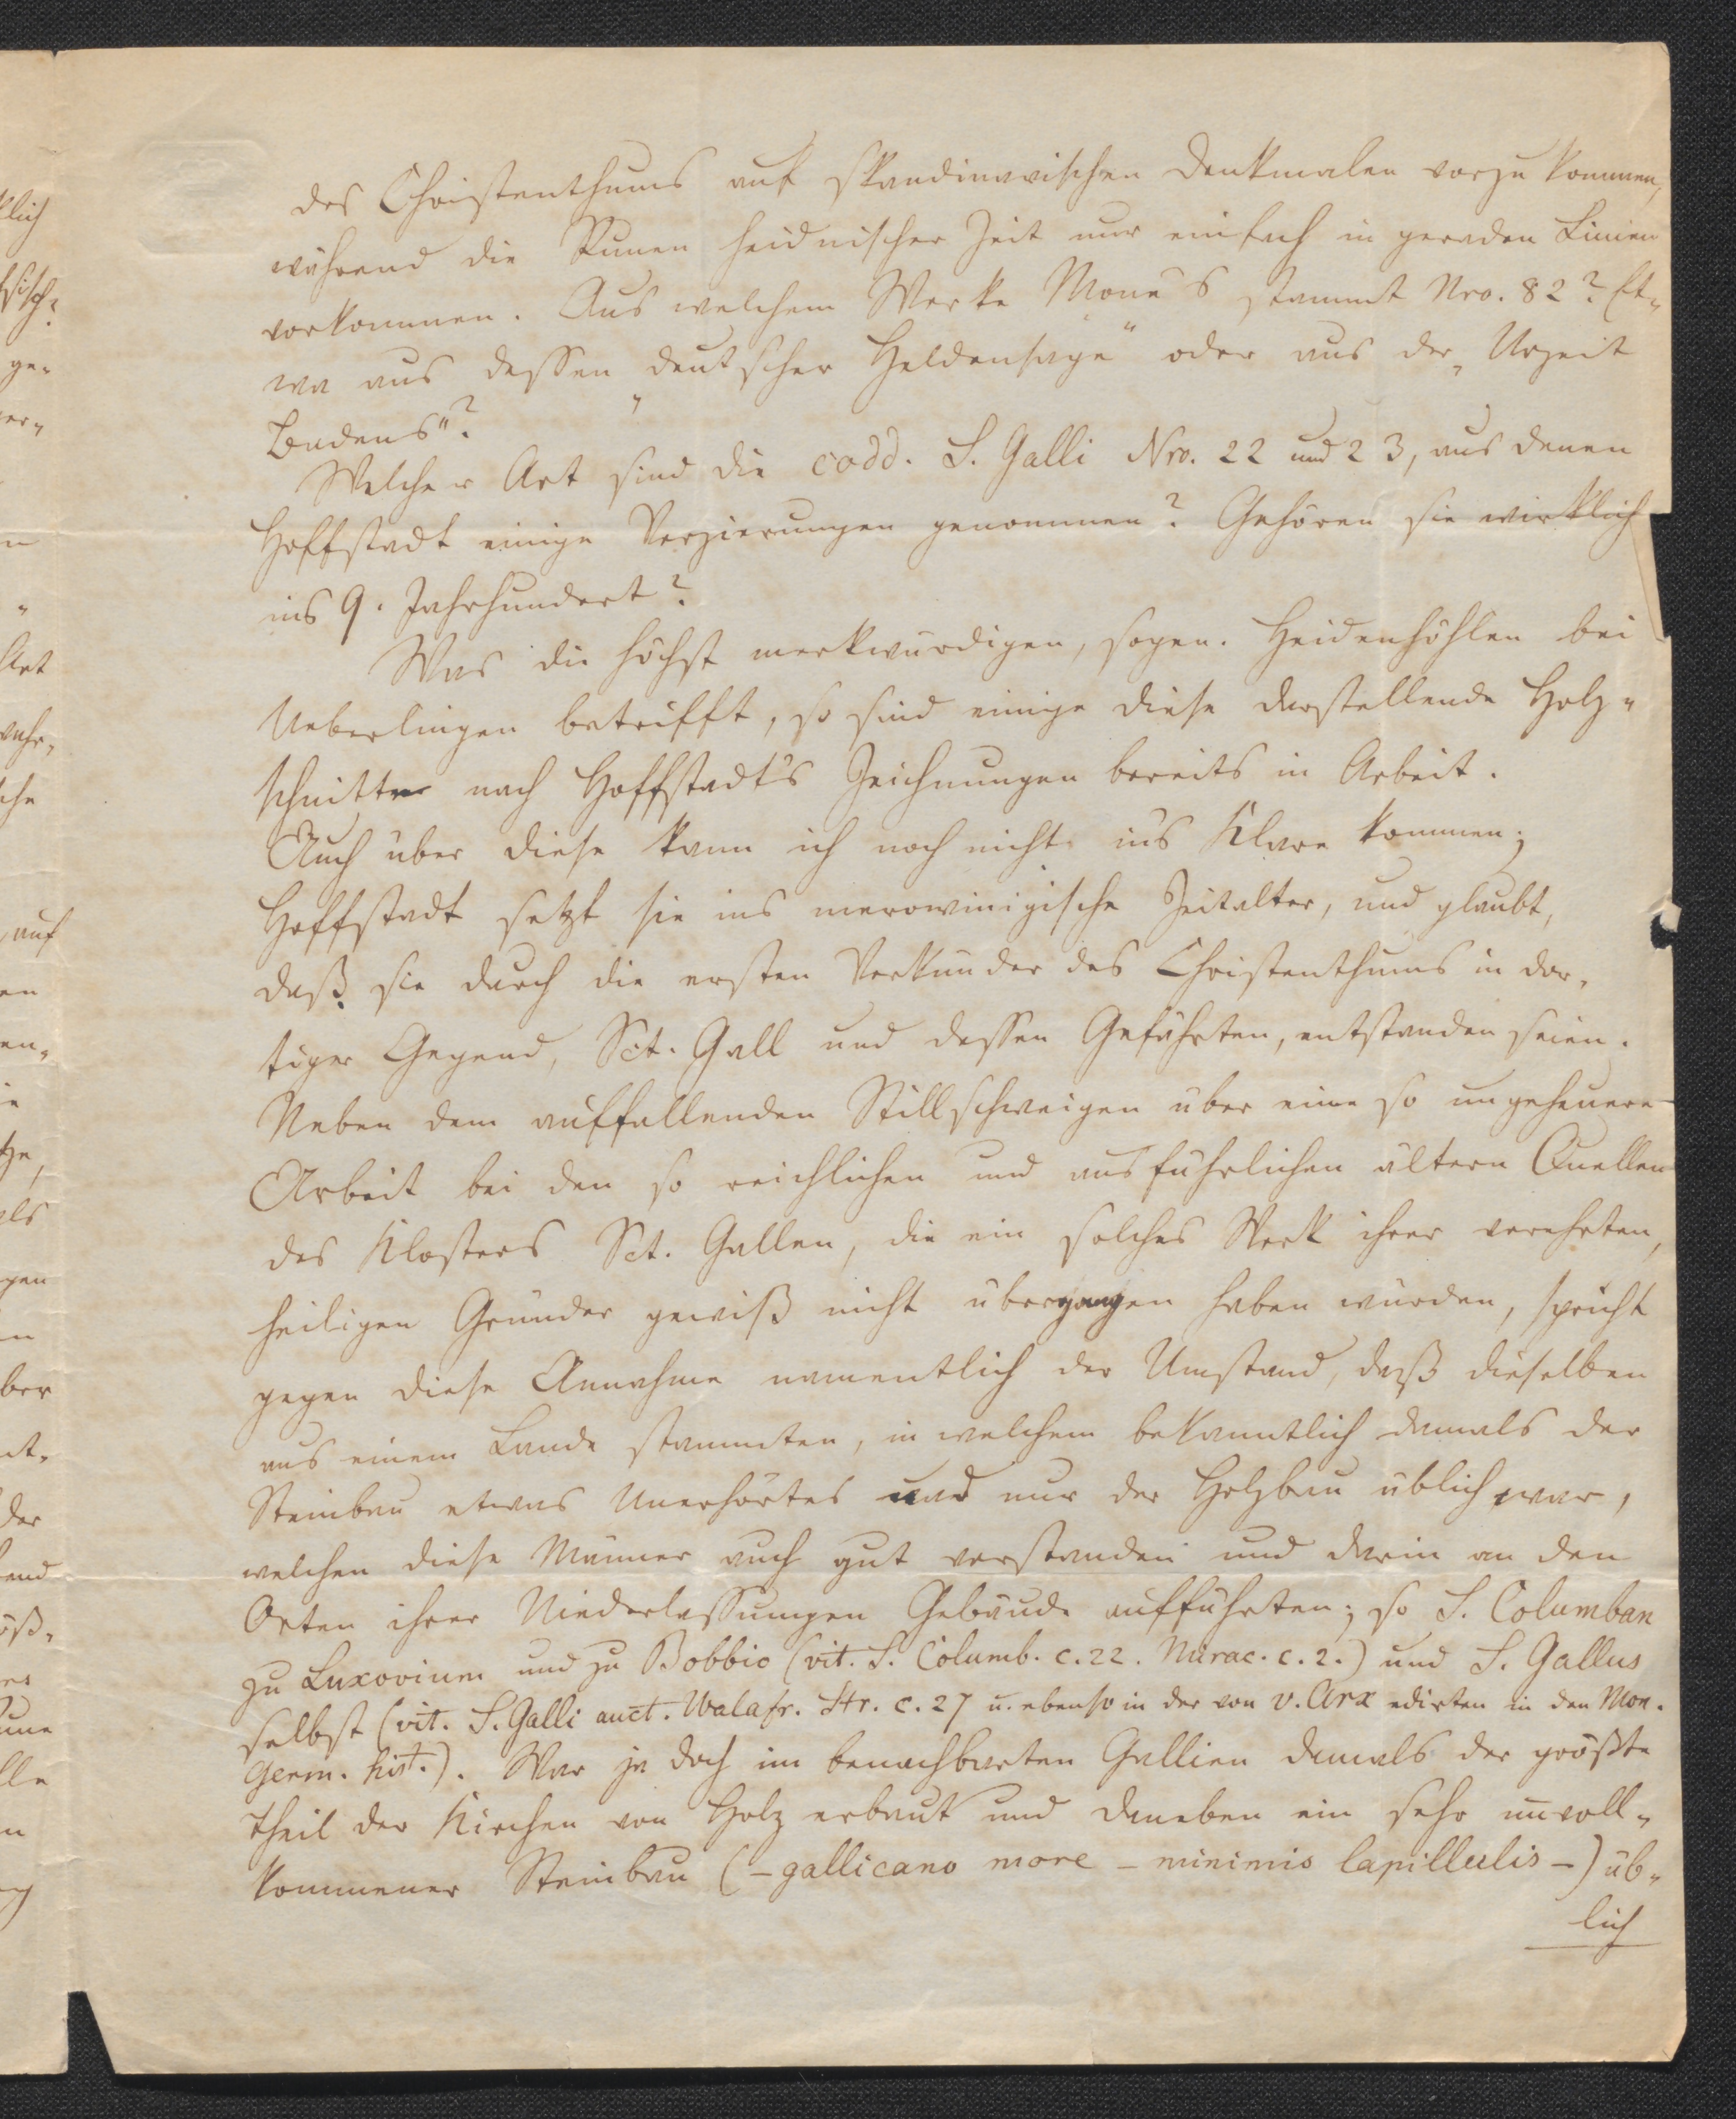 des Christenthums auf skandinavischen Denkmalen vorzukommen,
während die Runen heidnischer Zeit nur einfach in geraden Linien
vorkommen. Aus welchem Werke Mone's stammt Nro. 82? Et-
wa aus dessen „deutscher Heldensage“ oder aus der „Urzeit
Badens“?
Welcher Art sind die codd. S. Galli Nro. 22 und 23, aus denen
Hoffstadt einige Verzierungen genommen? Gehören sie wirklich
ins 9. Jahrhundert?
Was die höchst merkwürdigen, sogen. Heidenhöhlen bei
Ueberlingen betrifft, so sind einige diese darstellende Holz-
schnitte nach Hoffstadt's Zeichnungen bereits in Arbeit.
Auch über diese kann ich noch nicht in's Klare kommen;
Hoffstadt setzt sie ins merowinigische Zeitalter, und glaubt,
daß sie durch die ersten Verkünder des Christenthums in dor-
tiger Gegend, Sct. Gall und dessen Gefährten, entstanden seien.
Neben dem auffallenden Stillschweigen über eine so ungeheuere
Arbeit bei den so reichlichen und ausführlichen ältern Quellen
des Klosters Sct. Gallen, die ein solches Werk ihrer verehrten,
heiligen Gründer gewiß nicht übergangen haben würden, spricht
gegen diese Annahme namentlich der Umstand, daß dieselben
aus einem Lande stammten, in welchem bekanntlich damals der
Steinbau etwas Unerhörtes und nur der Holzbau üblich war,
welchen diese Männer auch gut verstanden und darin an den
Orten ihrer Niederlassungen Gebäude aufführten; so S. Columban
zu Luxovium und zu Bobbio (vit. S. Columb. c. 22. Mirac. c. 2.) und S. Gallus
selbst (vit. S. Galli auct. Walafr. Str. c. 27 u. ebenso in der von v. Arx edirten in den Mon.
Germ. hist.). War ja doch im benachbarten Gallien damals der größte
Theil der Kirchen von Holz erbaut und daneben ein sehr unvoll-
kommener Steinbau (– gallicano more – minimis lapillulis –) üb-
lich